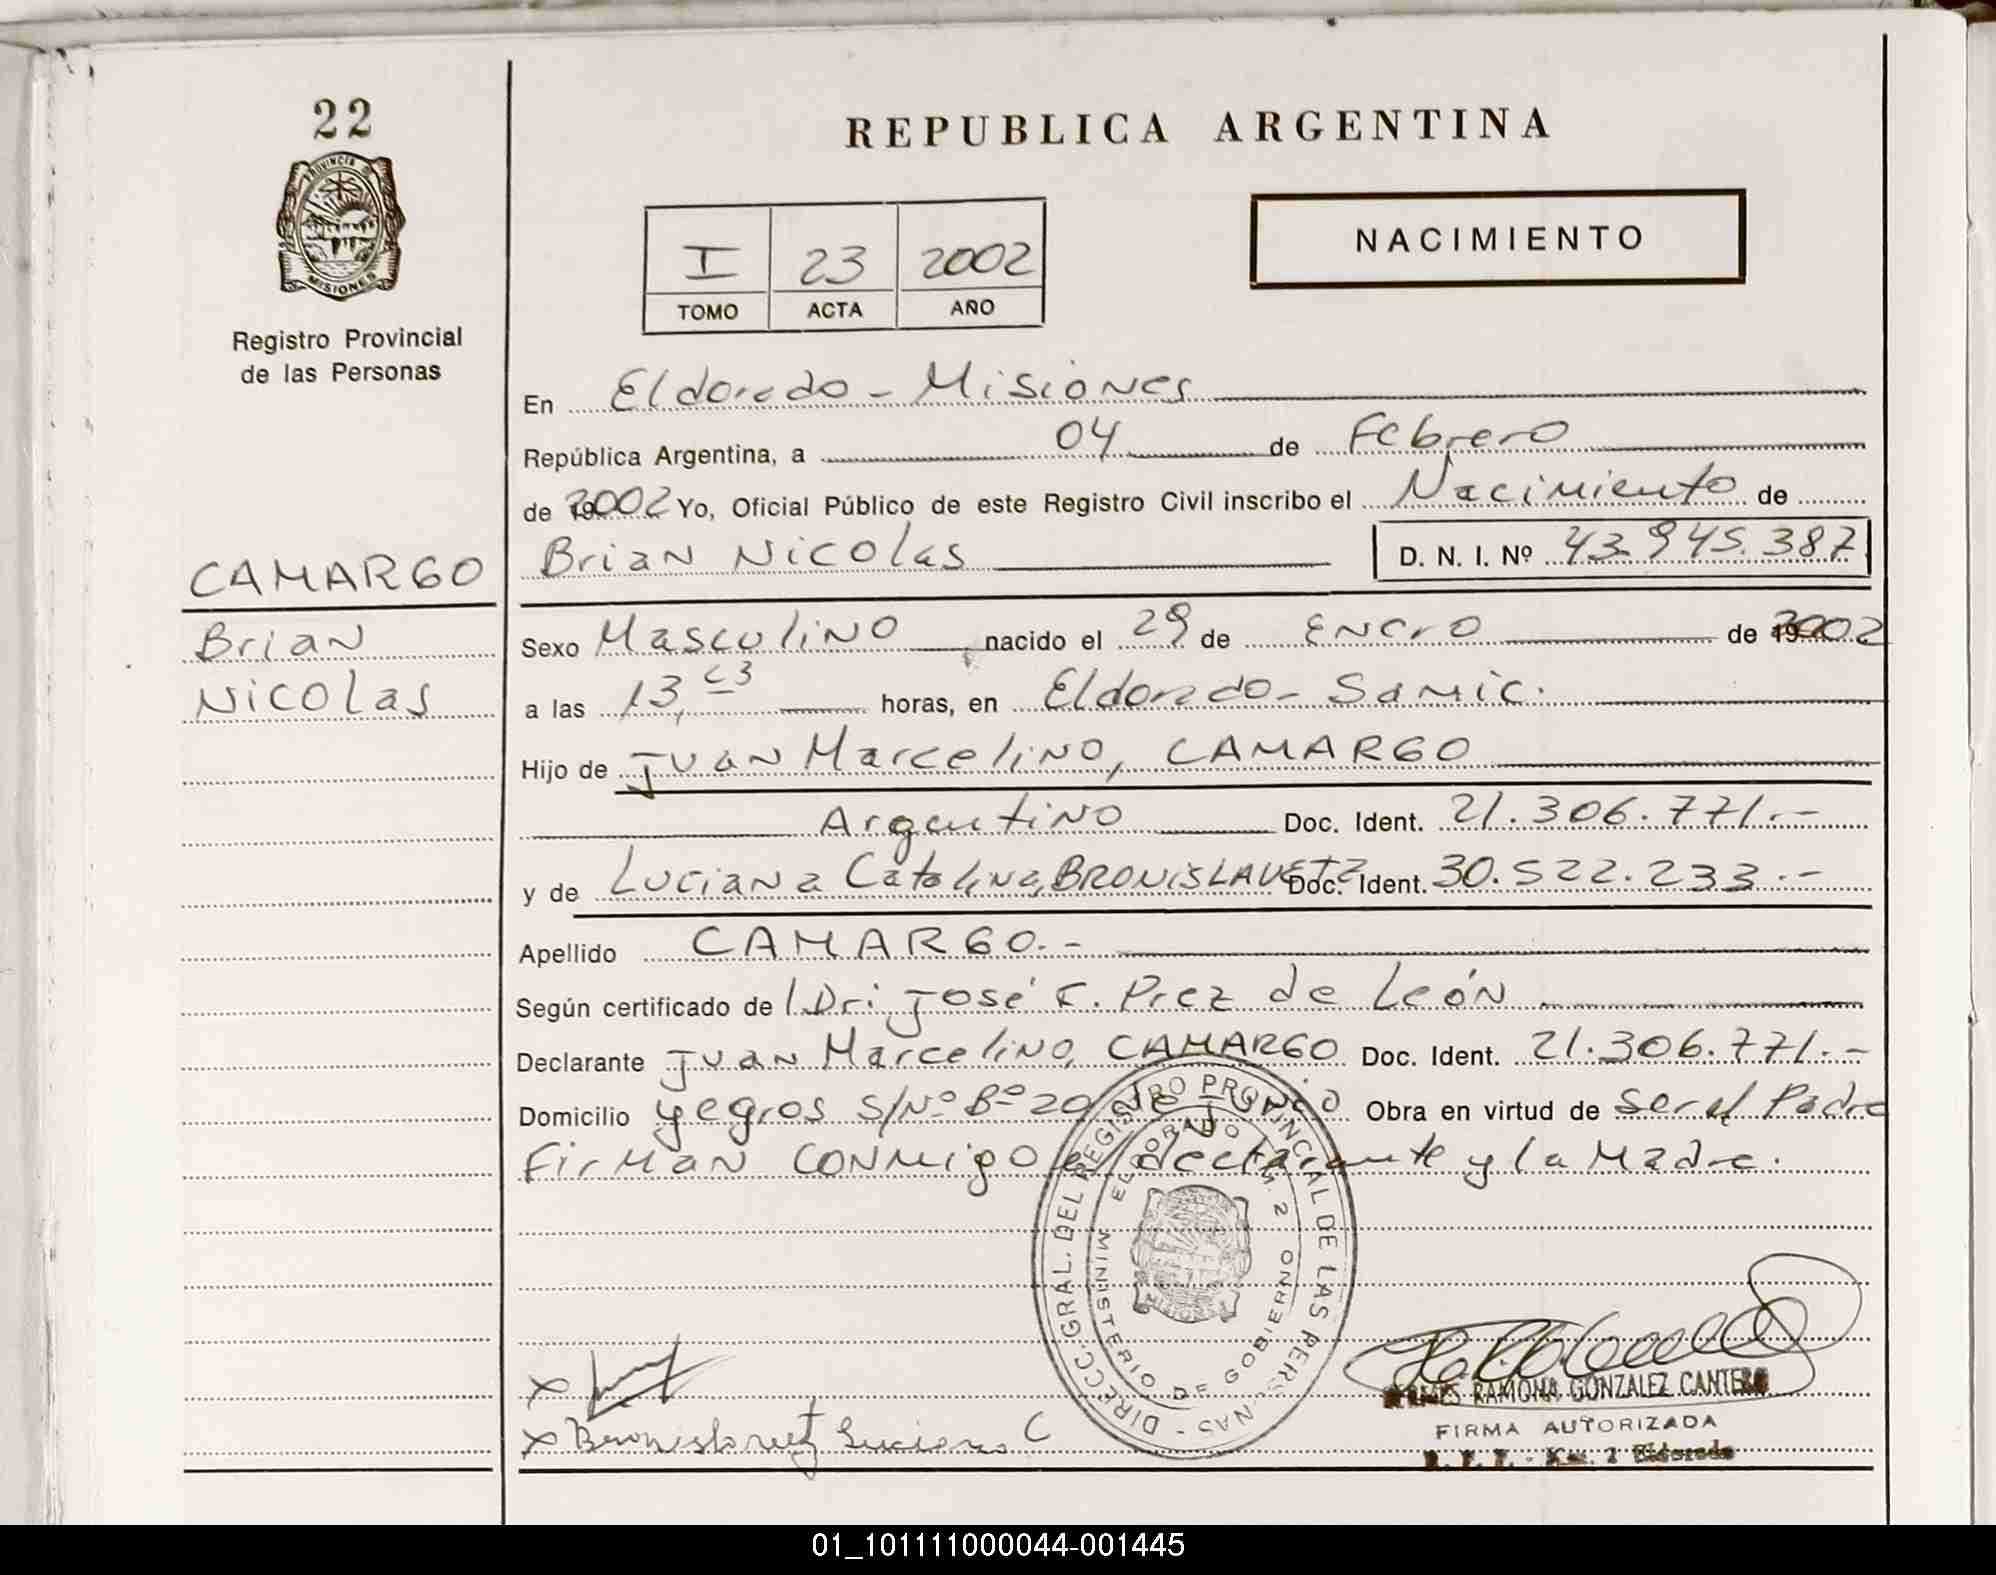 22
PROVINCIA
MISIONES
Registro Provincial
de las Personas
REPUBLICA ARGENTINA
NACIMIENTO
I 23 2002
TOMO ACTA AÑO
En Eldorado - Misiones
República Argentina, a 04 de Febrero
de 2002 Yo, Oficial Público de este Registro Civil inscribo el Nacimiento de
CAMARGO
Brian Nicolas D. N. I. Nº 43.945.387
Brian
Nicolas
Sexo Masculino nacido el 29 de Enero de 2002
a las 13, horas, en Eldorado - Samic.
Hijo de Juan Marcelino, CAMARGO
Argentino Doc. Ident. 21.306.771.-
y de Luciana Catalina, BRONISLAVETZ Doc. Ident. 30.522.233.-
Apellido CAMARGO.-
Según certificado de Dr. José F. Prez de León
Declarante Juan Marcelino, CAMARGO Doc. Ident. 21.306.771.-
Domicilio Yegros S/Nº Bº 20 de Junio Obra en virtud de ser el Padre
Firman conmigo el declarante y la Madre.
DIRECC. GRAL. DEL REGISTRO PROVINCIAL DE LAS PERSONAS
ELDORADO KM. 2
MINISTERIO DE GOBIERNO
x
x Bronislavetz Luciana C
RAMONA GONZALEZ CANTERO
FIRMA AUTORIZADA
Km. 2 Eldorado
01_101111000044-001445